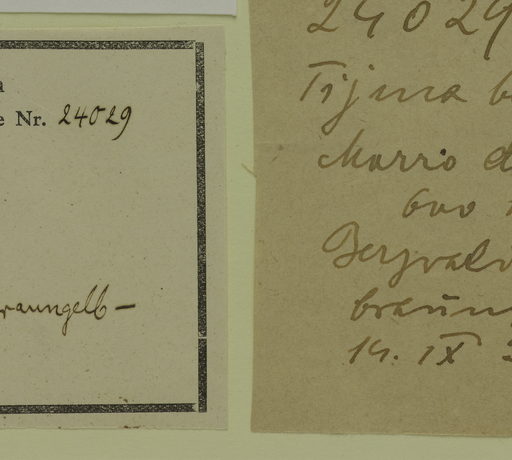 a
e Nr. 24029
raungelb –
24029
Tijuca b
Morro d
Bergwald
braun
14. IX